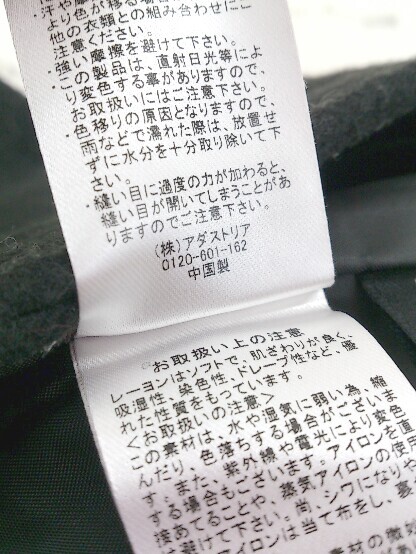 ・汗や摩
より色が移る場合
他の衣類との組み合わせに
注意ください。
・強い摩擦を避けて下さい。
・この製品は、直射日光等によ
り変色する事がありますので、
お取扱いにはご注意下さい。
・色移りの原因となりますので、
雨などで濡れた際は、放置せ
ずに水分を十分取り除いて下
さい。
・縫い目に過度の力が加わると、
縫い目が開いてしまうことがあ
りますのでご注意下さい。
(株)アダストリア
0120-601-162
中国製
お取扱い上の注意
レーヨンはソフトで、肌ざわりが良く、
吸湿性、染色性、ドレープ性など、優
れた性質をもっています。
<お取扱いの注意>
この素材は、水や湿気に弱い為、縮
んだり、色落ちする場合がございま
す。また、紫外線や霧光により変色
する場合もございます。アイロンを直
接あてることや、蒸気アイロンの使
避けて下さい。尚、シワになりや
アイロンは当て布をし、裏
材の微